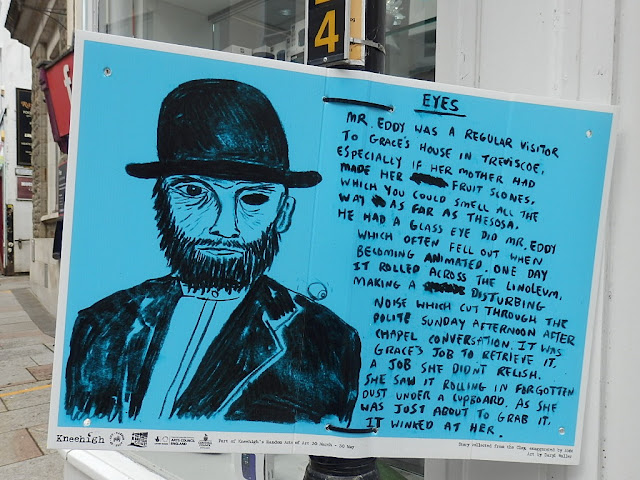 4
EYES
MR. EDDY WAS A REGULAR VISITOR
TO GRACE'S HOUSE IN TREVISCOE,
ESPECIALLY IF HER MOTHER HAD
MADE HER FRUIT SCONES,
WHICH YOU COULD SMELL ALL THE
WAY AS FAR AS THESOSA.
HE HAD A GLASS EYE DID MR. EDDY
WHICH OFTEN FELL OUT WHEN
BECOMING ANIMATED. ONE DAY
IT ROLLED ACROSS THE LINOLEUM,
MAKING A DISTURBING
NOISE WHICH CUT THROUGH THE
POLITE SUNDAY AFTERNOON AFTER
CHAPEL CONVERSATION. IT WAS
GRACE'S JOB TO RETRIEVE IT.
A JOB SHE DIDNT RELISH.
SHE SAW IT ROLLING IN FORGOTTEN
DUST UNDER A CUPBOARD. AS SHE
WAS JUST ABOUT TO GRAB IT,
IT WINKED AT HER.
Kneehigh
ARTS COUNCIL
ENGLAND
Part of Kneehigh's Random Acts of Art 30 March - 30 May
Story collected from the Clay, exaggerated by
Art by Daryl Waller